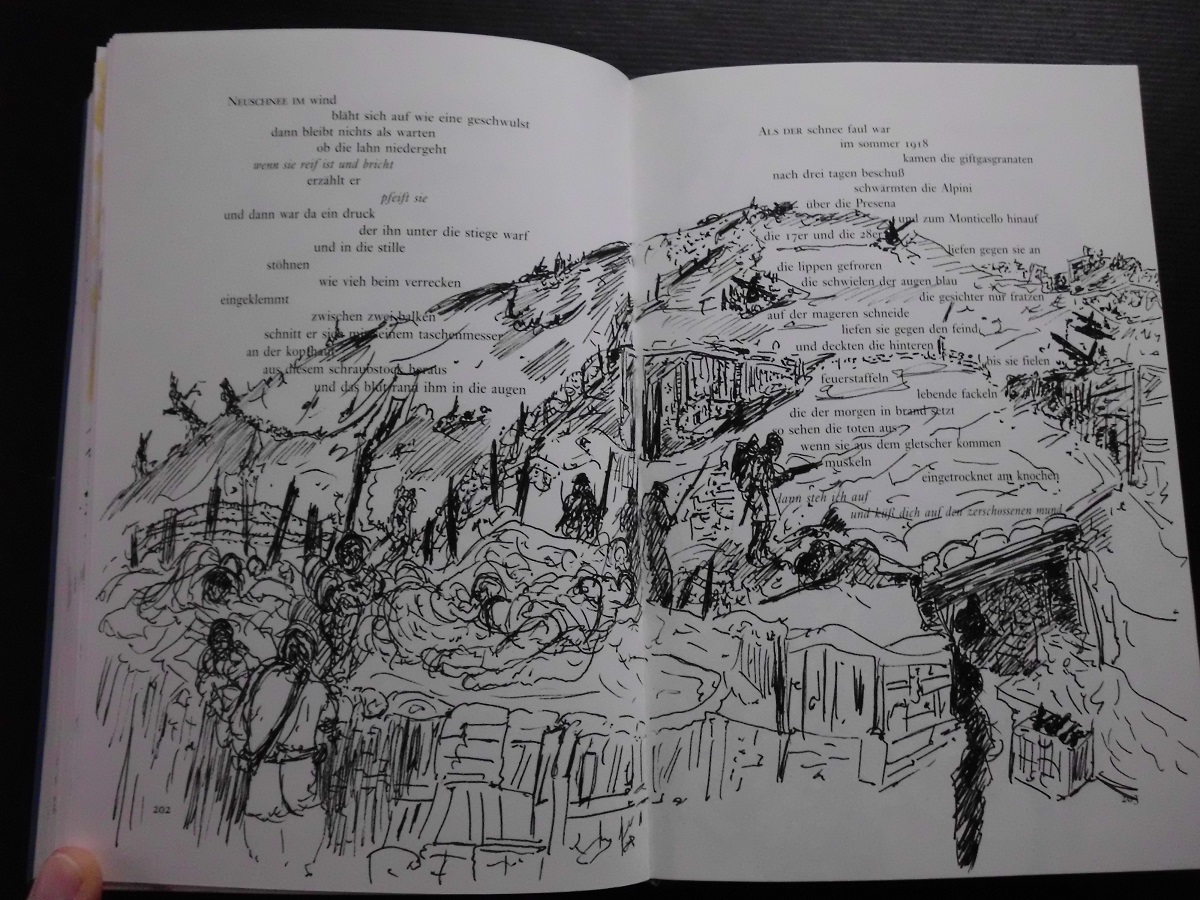 NEUSCHNEE IM wind
bläht sich auf wie eine geschwulst
dann bleibt nichts als warten
ob die lahn niedergeht
wenn sie reif ist und bricht
erzählt er
pfeift sie
und dann war da ein druck
der ihn unter die stiege warf
und in die stille
stöhnen
wie vieh beim verrecken
eingeklemmt
zwischen zwei balken
schnitt er sich mit seinem taschenmesser
an der kopfhaut
aus diesem schraubstock heraus
und das blut rann ihm in die augen
202
ALS DER schnee faul war
im sommer 1918
kamen die giftgasgranaten
nach drei tagen beschuß
schwärmten die Alpini
über die Presena
und zum Monticello hinauf
die 17er und die 28er
liefen gegen sie an
die lippen gefroren
die schwielen der augen blau
die gesichter nur fratzen
auf der mageren schneide
liefen sie gegen den feind
und deckten die hinteren
bis sie fielen
feuerstaffeln
lebende fackeln
die der morgen in brand setzt
so sehen die toten aus
wenn sie aus dem gletscher kommen
muskeln
eingetrocknet am knochen
dann steh ich auf
und küß dich auf den zerschossenen mund
203